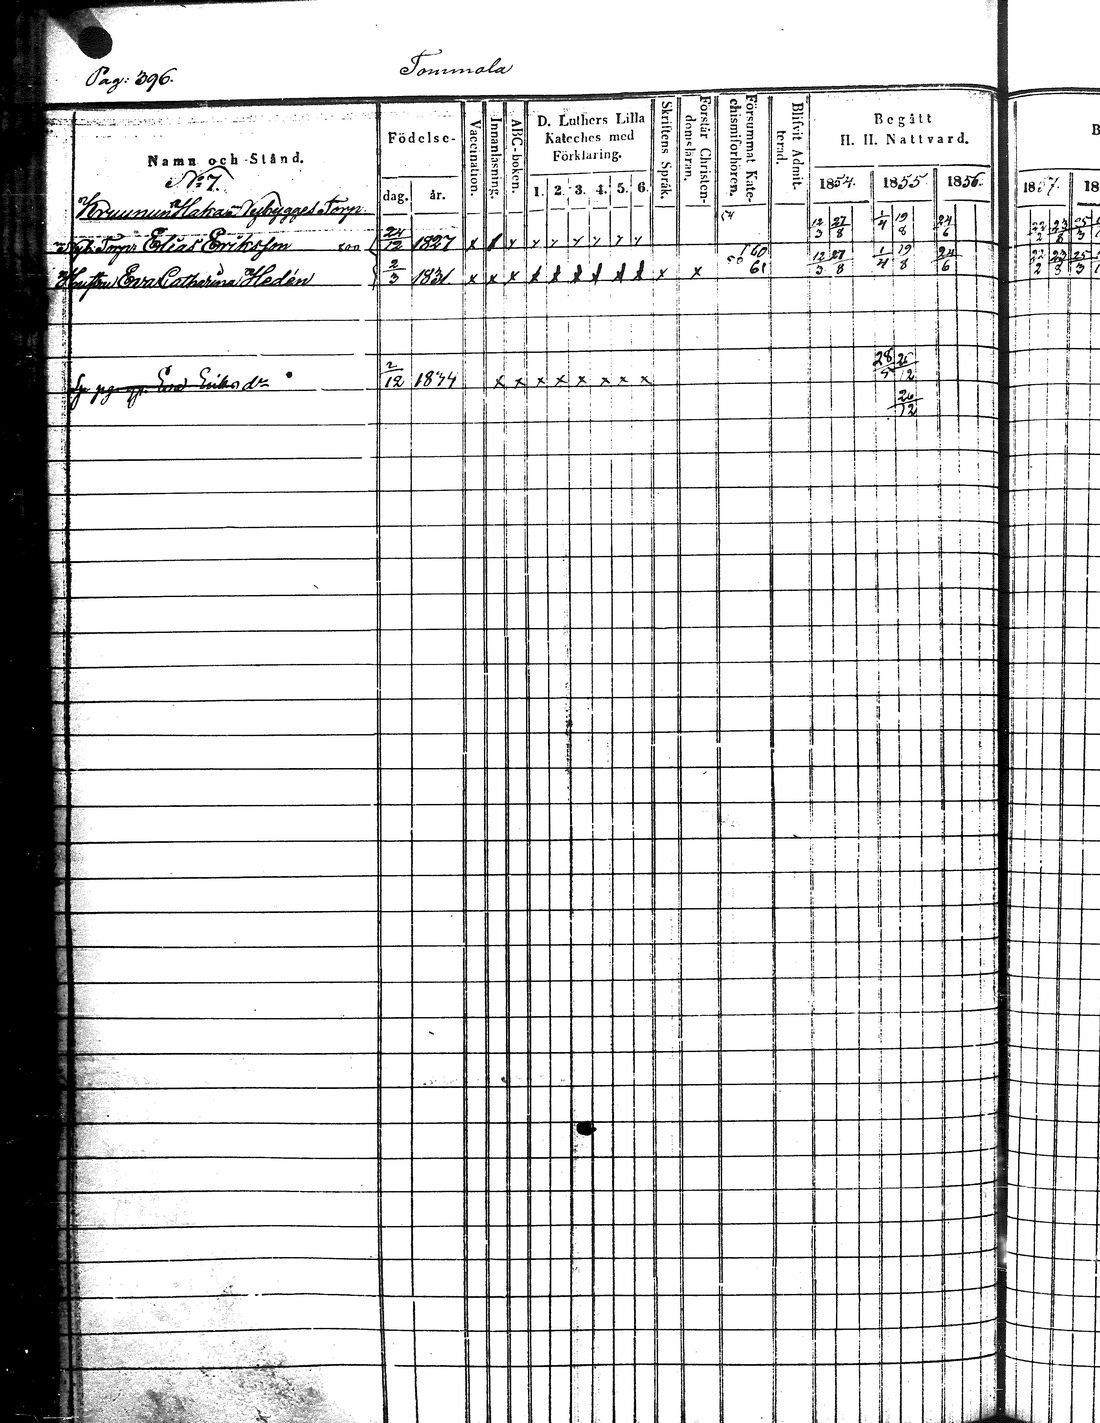 Pag: 396.
Tommola
Namn och Stånd.
Födelse-
dag. år.
Vaccination.
Innanläsning.
ABC-boken.
D. Luthers Lilla
Kateches med
Förklaring.
1. 2. 3. 4. 5. 6.
Skriftens Språk.
Förstår Christen-
domsläran.
Försummat Kate-
chismiförhören.
Blifvit Admit-
terad.
Begått
H. H. Nattvard.
1854. 1855 1856.
1857. 18
B
No 7.
Kruunun Hakas Nybygges Torp.
Torp: Elias Eriksson 24/12 1827 x x x x x x x x x 12/3 27/8 1/4 19/8 24/6
Hustru Eva Catharina Hedén 2/3 1831. x x x x x x x x x x x 60 61 12/3 27/8 1/4 19/8 24/6
Eva Eriks dr 2/12 1834 x x x x x x x x 28/5 26/12
26/12